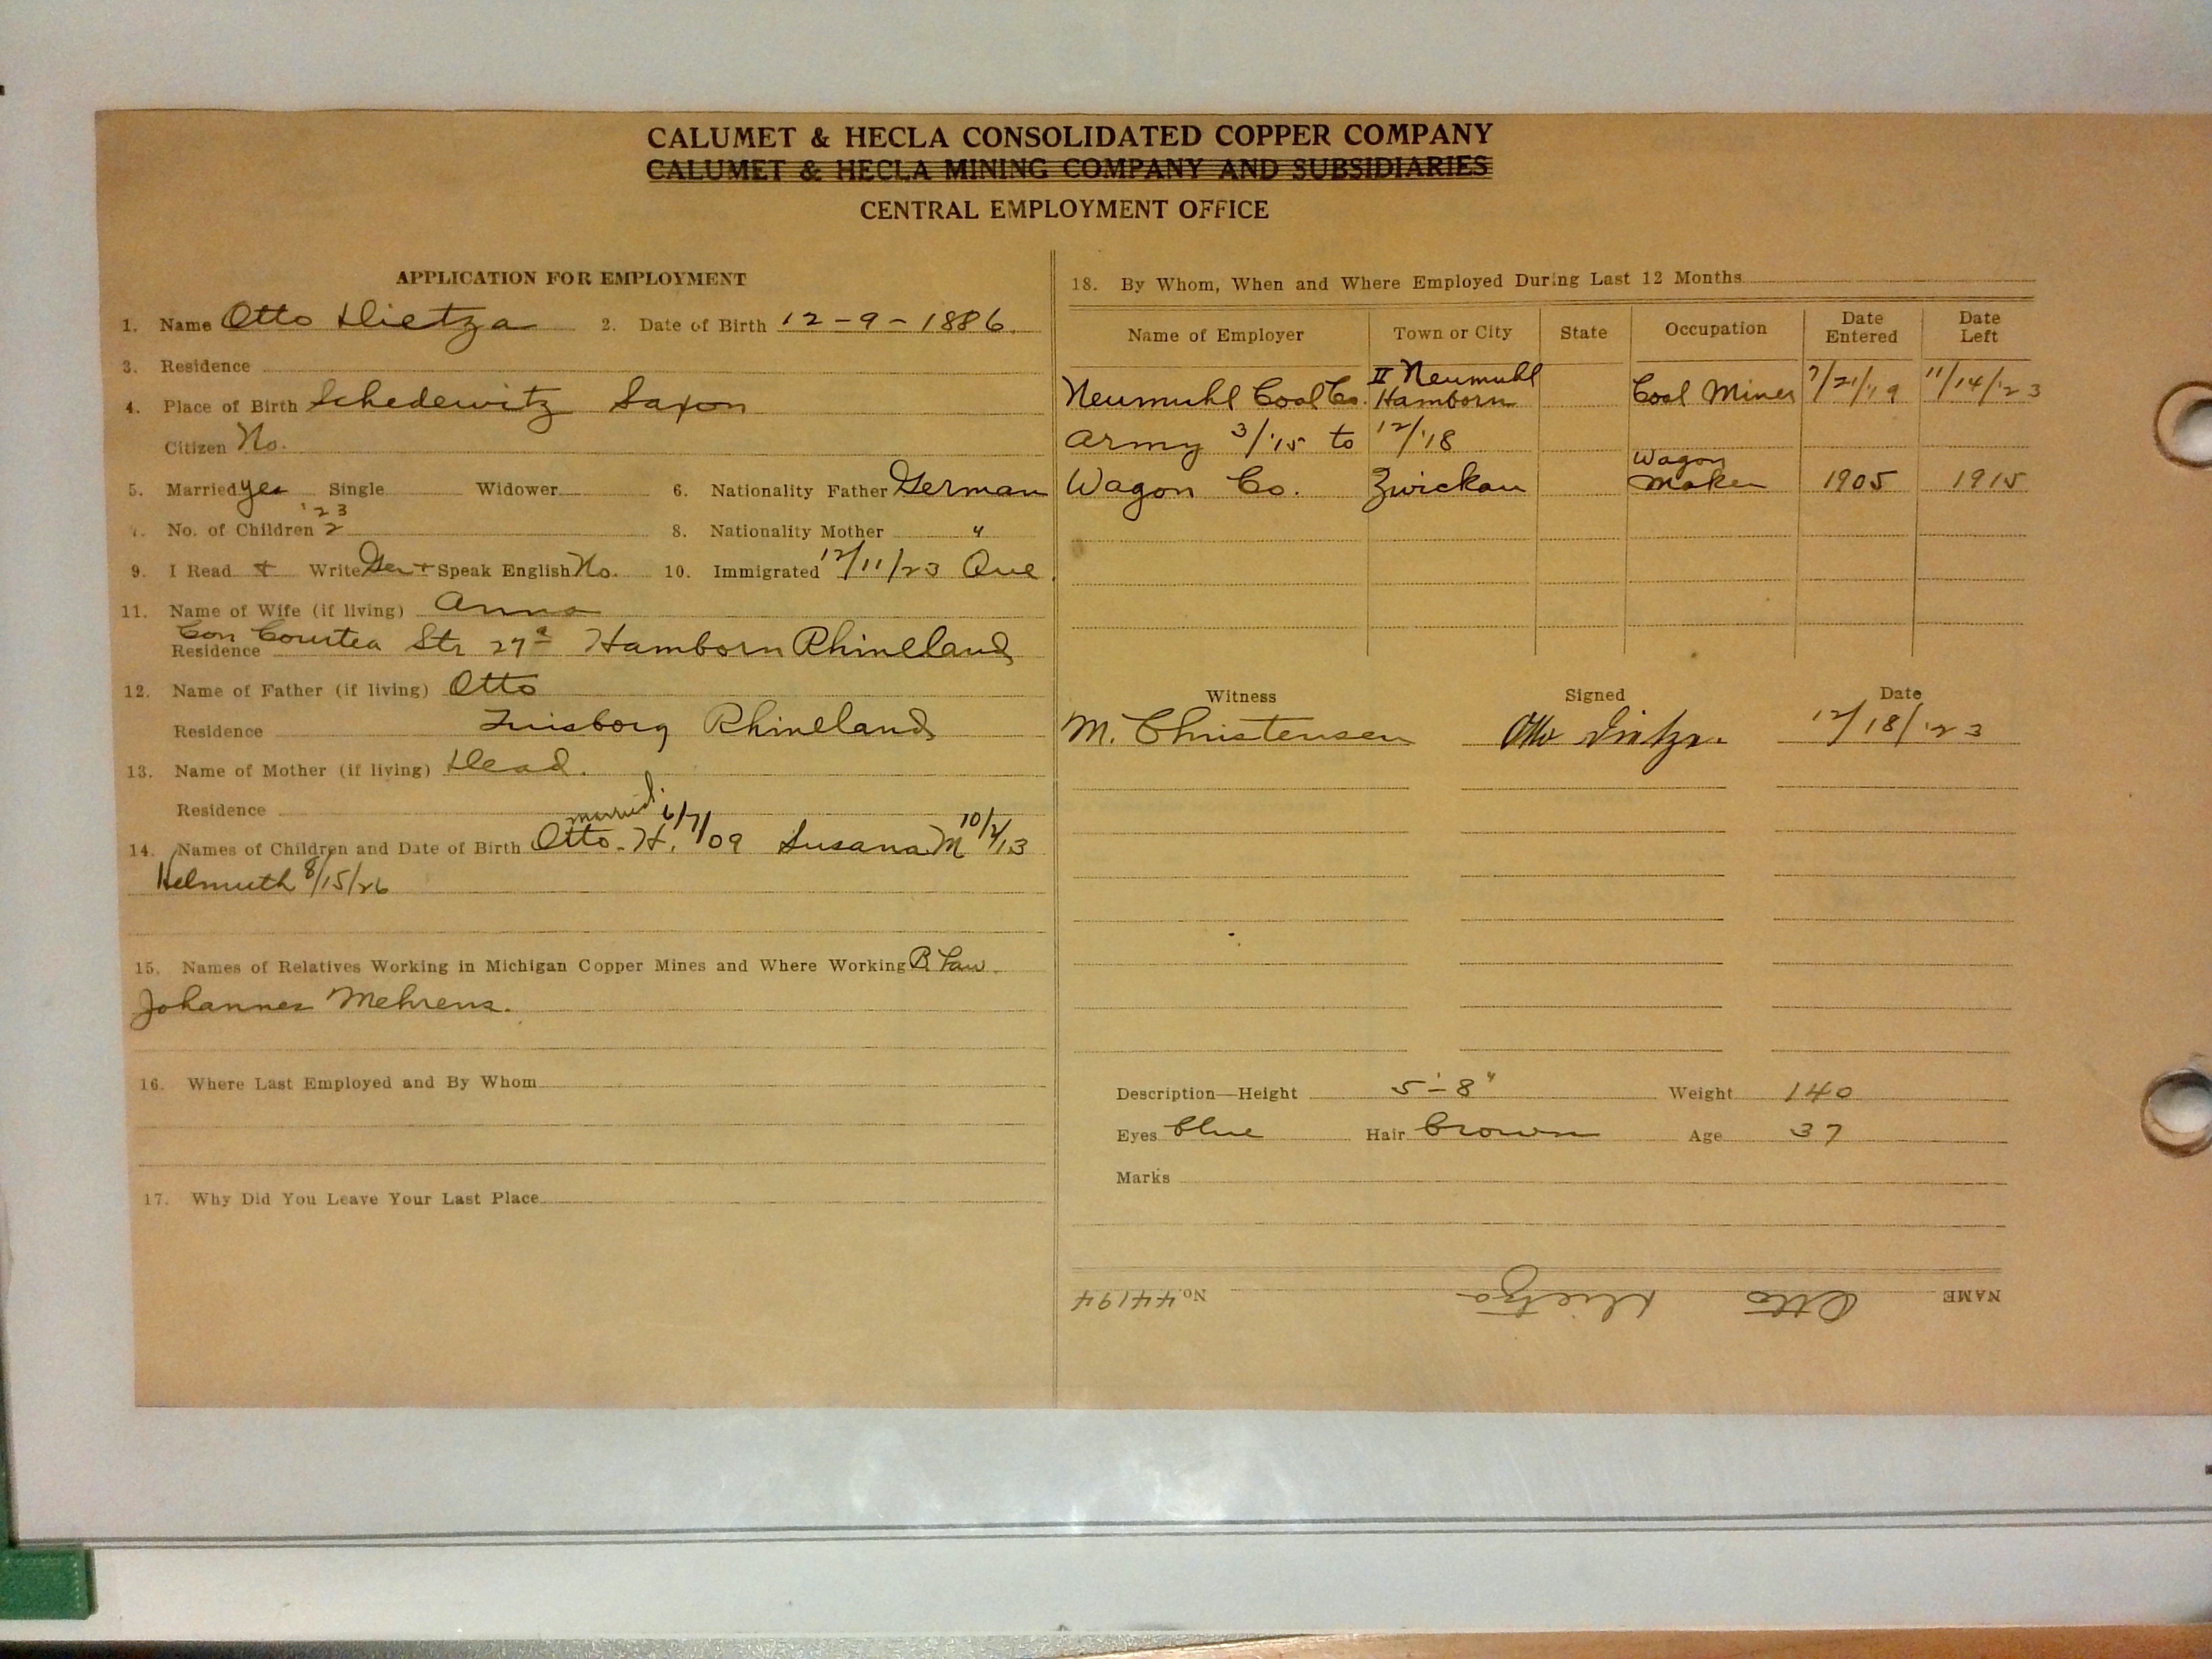 CALUMET & HECLA CONSOLIDATED COPPER COMPANY
CALUMET & HECLA MINING COMPANY AND SUBSIDIARIES
CENTRAL EMPLOYMENT OFFICE
APPLICATION FOR EMPLOYMENT
1. Name Otto Dietza 2. Date of Birth 12-9-1886.
3. Residence
4. Place of Birth Schedewitz Saxon
Citizen No.
5. Married yes Single Widower 6. Nationality Father German
'23
7. No. of Children 2 8. Nationality Mother "
9. I Read + Write Ger + Speak English No. 10. Immigrated 12/11/23 Que.
11. Name of Wife (if living) Anna
Residence Str 27a Hamborn Rhineland
12. Name of Father (if living) Otto
Residence Rhineland
13. Name of Mother (if living) Dead.
Residence
married
14. Names of Children and Date of Birth Otto. H. 6/7/09 Susana M 10/2/13
Helmuth 8/15/26
15. Names of Relatives Working in Michigan Copper Mines and Where Working B. Law.
Johannes Mehrens.
16. Where Last Employed and By Whom
17. Why Did You Leave Your Last Place
18. By Whom, When and Where Employed During Last 12 Months
Name of Employer Town or City State Occupation Date Entered Date Left
II Neumuhl
Neumuhl Coal Co. Hamborn Coal Miner 7/21/19 11/14/'23
Army 3/'15 to 12/'18
Wagon Co. Zwickau Wagon Maker 1905 1915
Witness Signed Date
M. Christensen Otto Dietza. 12/18/'23
Description—Height 5'-8" Weight 140
Eyes blue Hair brown Age 37
Marks
NAME Otto Dietza No. 44194